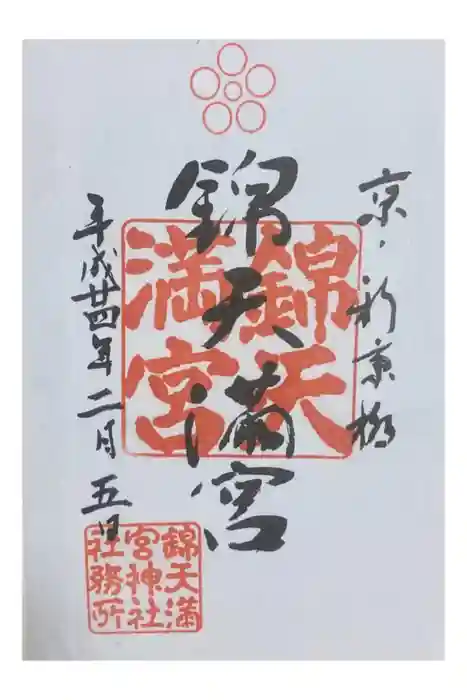 京・新京極
錦天満宮
錦天
満宮
平成廿四年二月五日
錦天満
宮神社
社務所